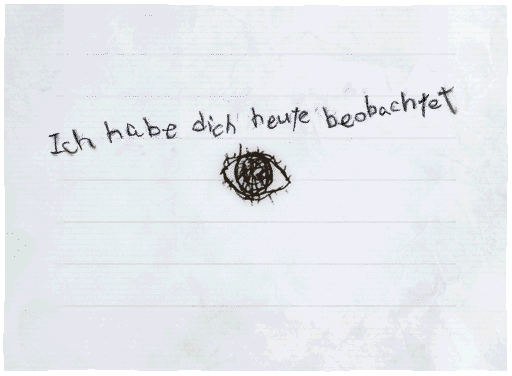 Ich habe dich heute beobachtet